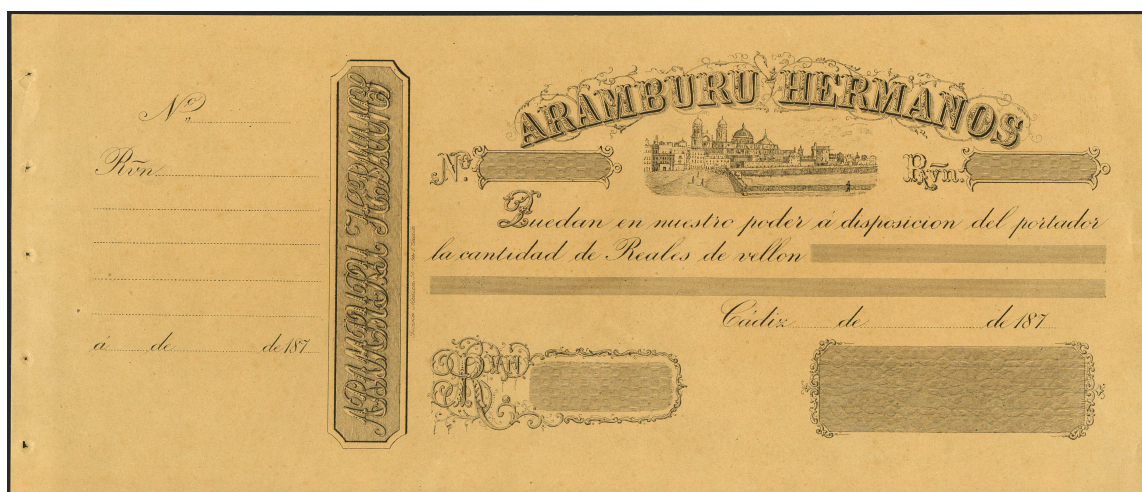 Nº
Rvn.
á de de 187
ARAMBURU HERMANOS
ARAMBURU HERMANOS
Nº.
Rvn.
Quedan en nuestro poder á disposicion del portador
la cantidad de Reales de vellon
Cádiz de de 187